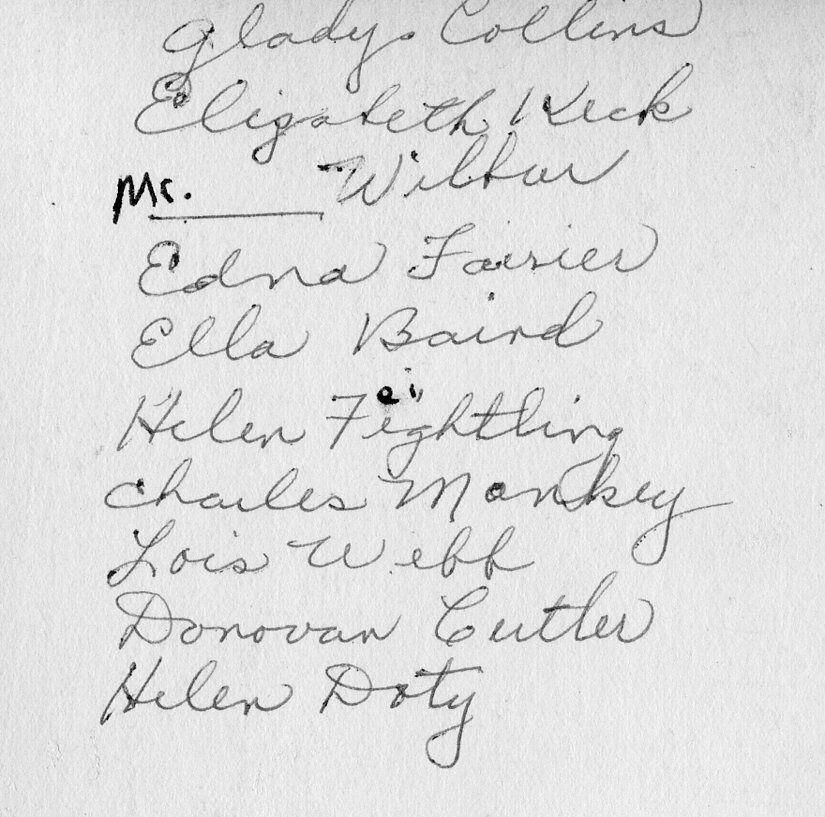 Gladys Collins
Elizabeth Keck
Mr. ______ Wilbur
Edna Farrier
Ella Baird
Helen Feightling
Charles Monkey
Lois Webb
Donovan Cutler
Helen Doty